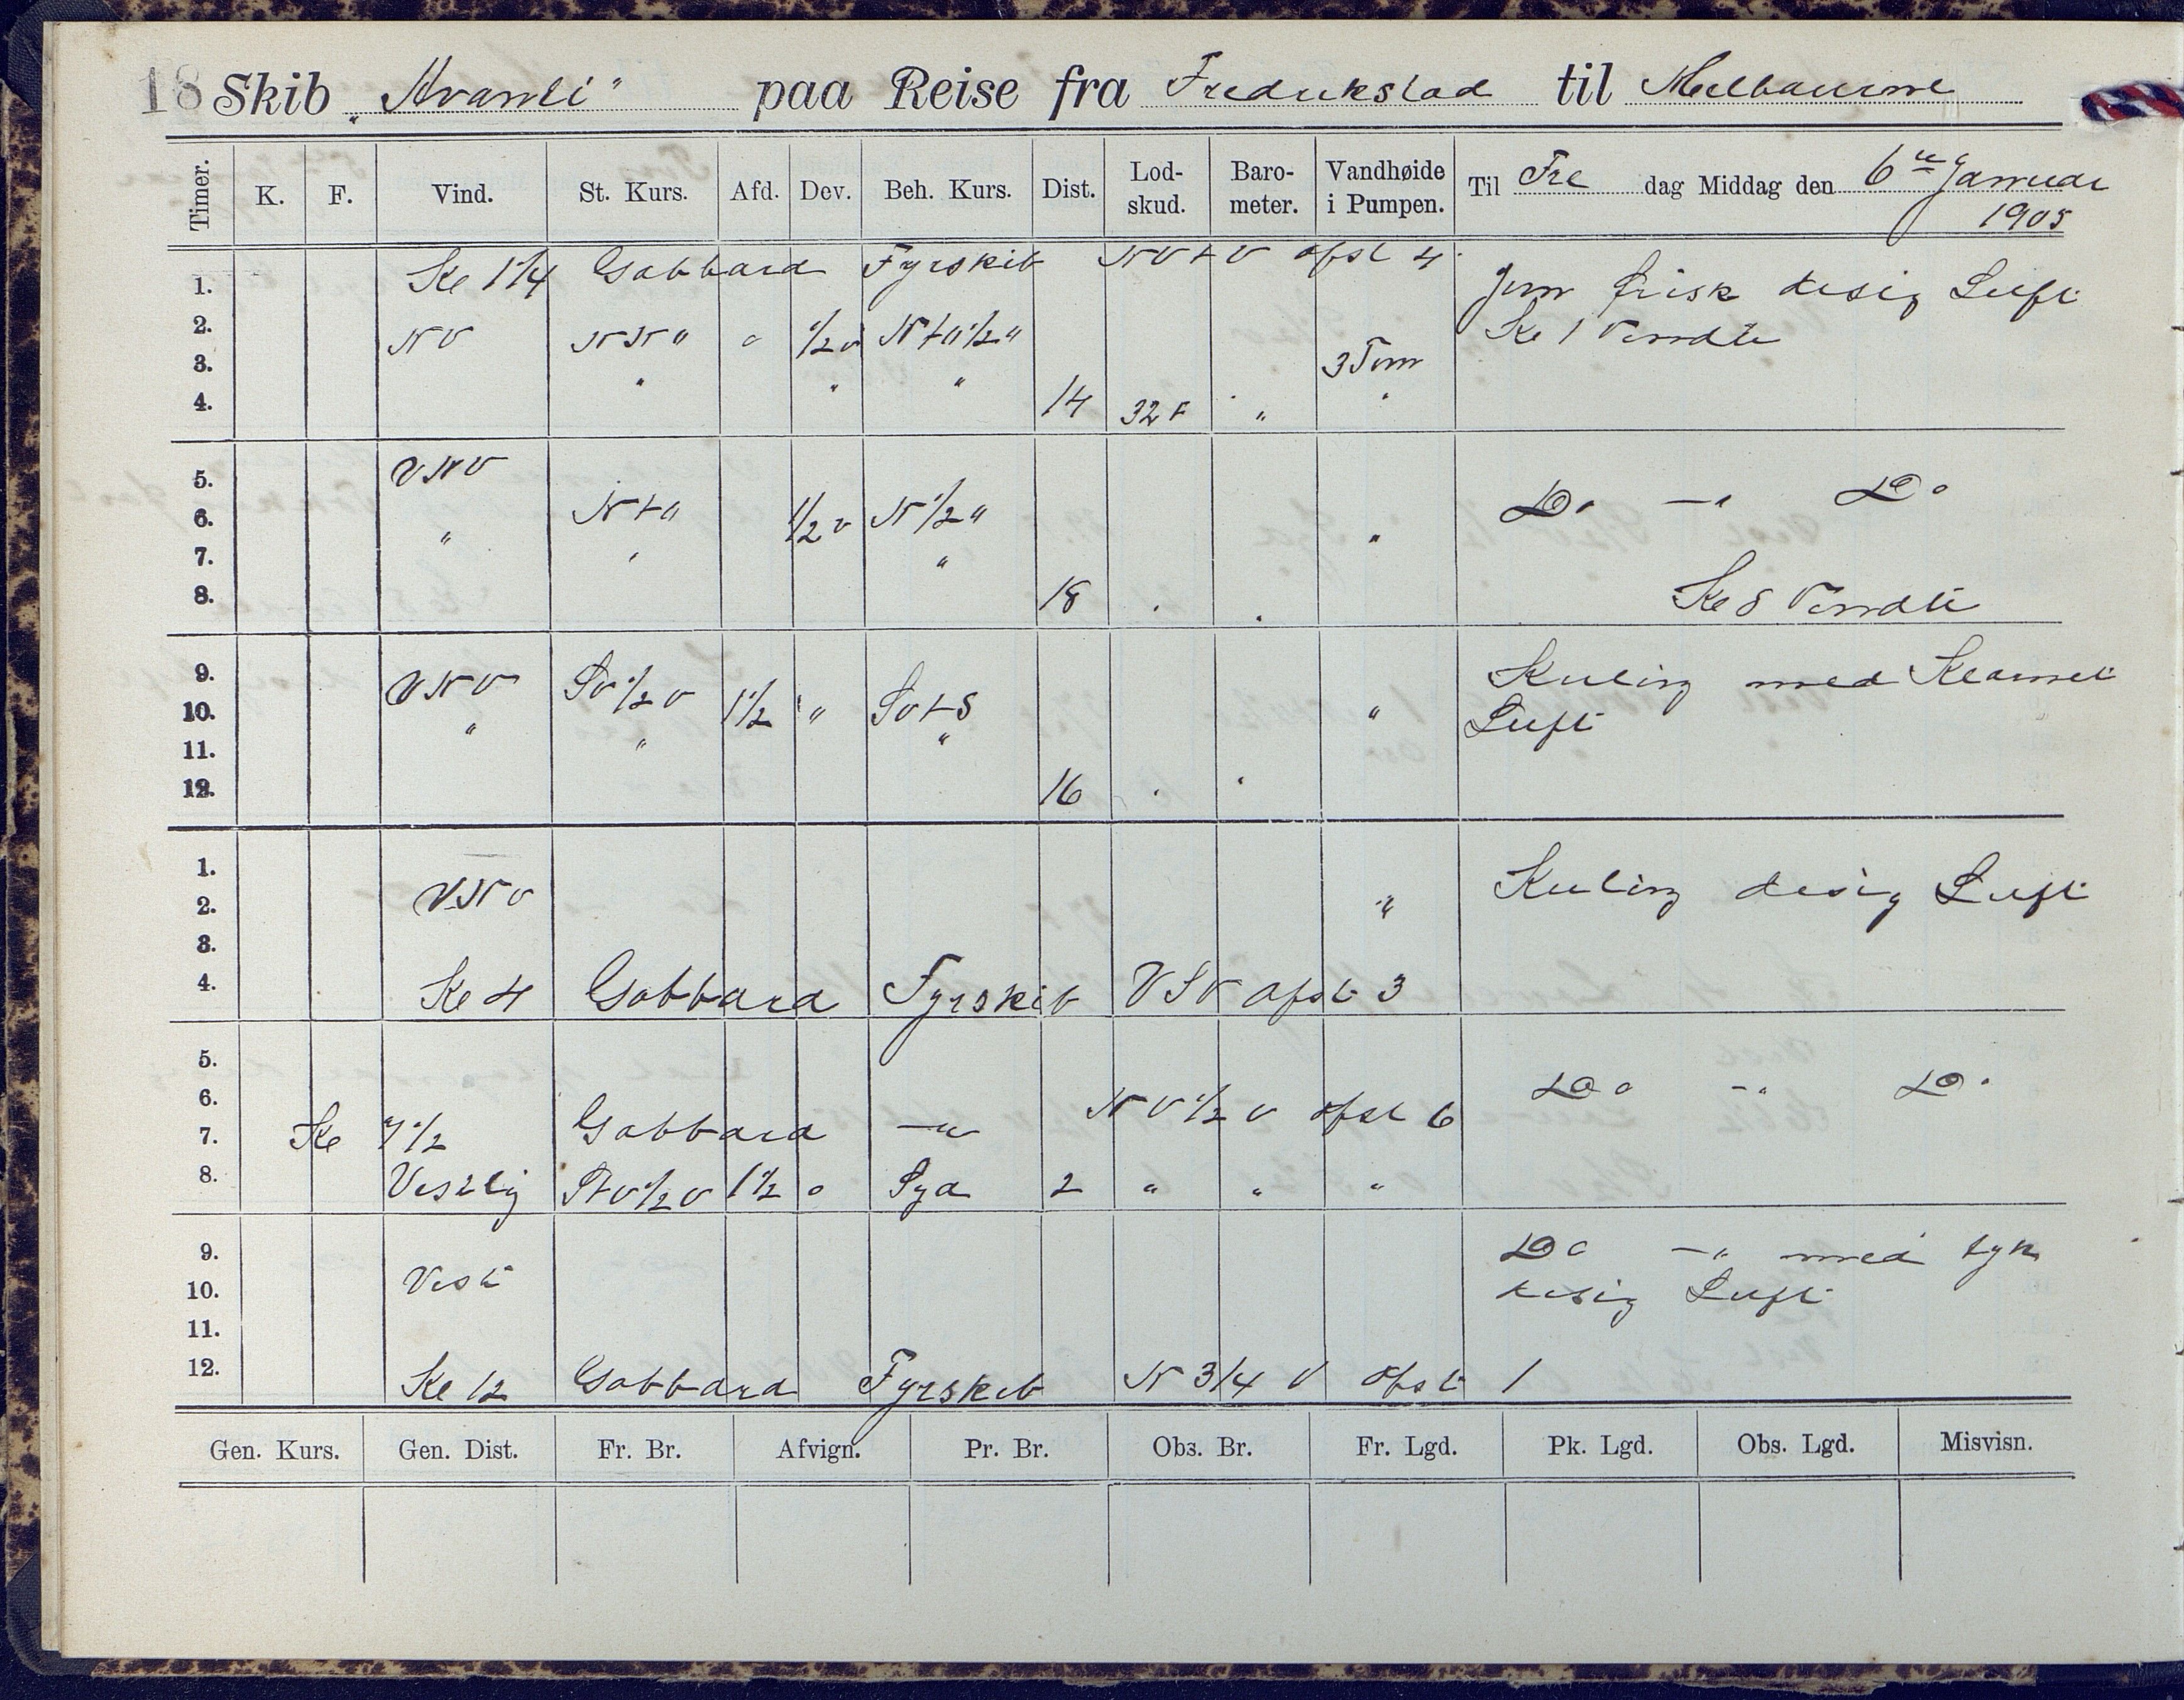 18 Skib „Avanti" paa Reise fra Fredrikstad til Melbourne
Timer. K. F. Vind. St. Kurs. Afd. Dev. Beh. Kurs. Dist. Lod-skud. Baro-meter. Vandhøide i Pumpen. Til Fre dag Middag den 6te Januar
1905
1. Kl 1 1/4 Gabbard Fyrskib NV t V afst 4 Jevn frisk disig Luft
2. NV NN " " 1/2 v N t " 1/2 " Kl 1 Vendte
3. " " " 3 Tom
4. 14 32 F " "
5. VNV
6. N t " 1/2 v N 1/2 " Do — " Do
7. " " " "
8. 18 Kl 8 Vendte
9. VNV SV 1/2 V Kuling med Klarnet
10. 1 1/2 " SV t S " Luft
11. " " "
12. 16
1. Kuling disig Luft
2. VNV "
3.
4. Kl 4 Gabbard Fyrskib VSV afst 3
5.
6. Do — " Do
7. Kl 7 1/2 Gabbard — " NV 1/2 V afst 6
8. Vestlig S t V 1/2 V 1 1/2 0 Syd 2 " " "
9. Do — " med tyk
10. Vest disig Luft
11.
12. Kl 12 Gabbard Fyrskib N 3/4 V afst 1
Gen. Kurs. Gen. Dist. Fr. Br. Afvign. Pr. Br. Obs. Br. Fr. Lgd. Pk. Lgd. Obs. Lgd. Misvisn.